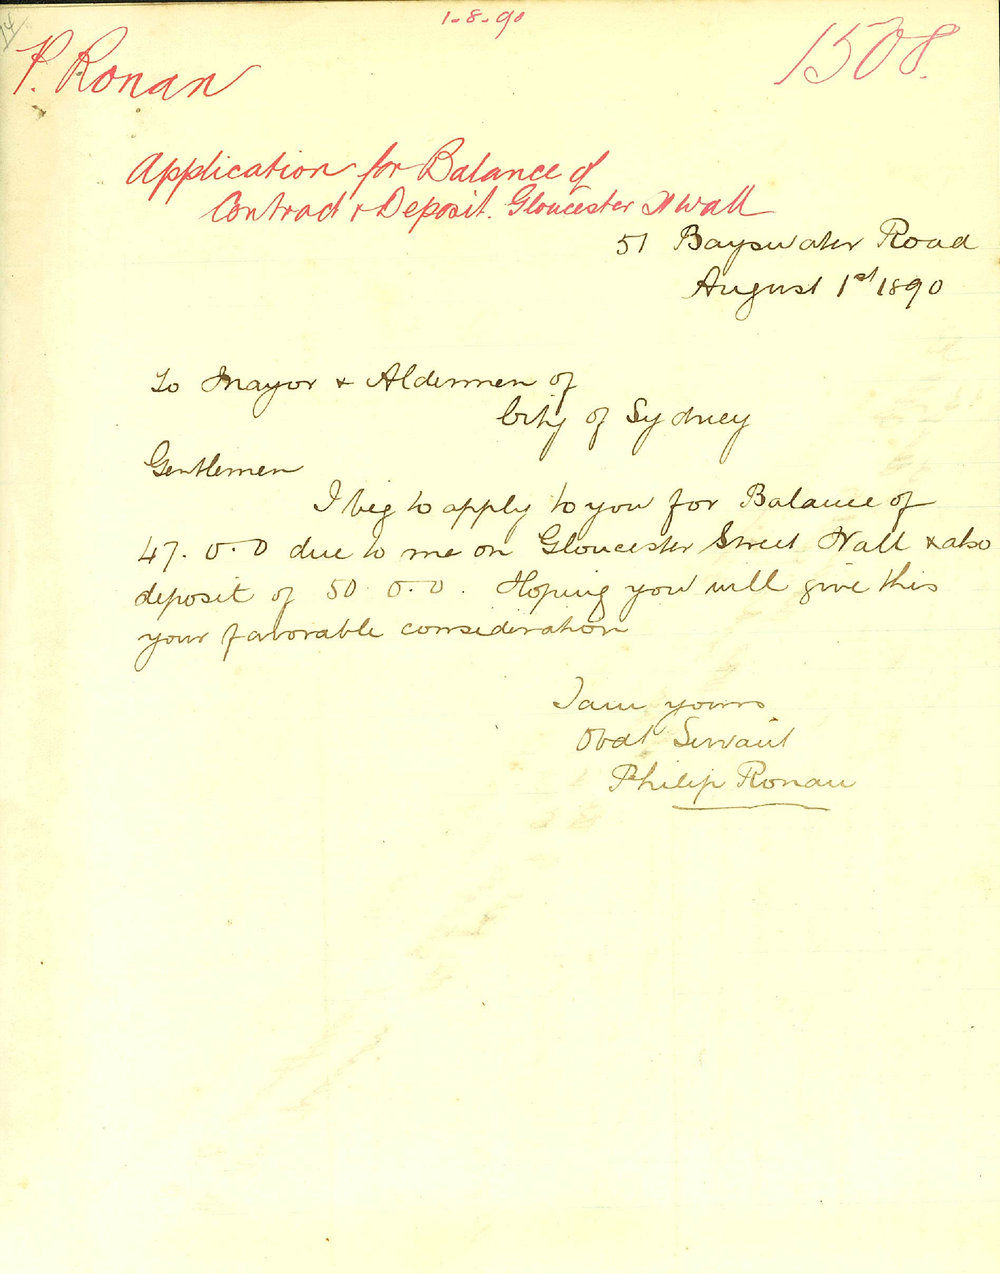 14
1-8-90
P. Ronan
1508.
Application for Balance of
Contract & Deposit. Gloucester St Wall
51 Bayswater Road
August 1st 1890
To Mayor & Aldermen of
City of Sydney
Gentlemen
I beg to apply to you for Balance of
47. 0. 0 due to me on Gloucester Street Wall & also
deposit of 50. 0. 0. Hoping you will give this
your favorable consideration
I am yours
Obdt Servant
Philip Ronan